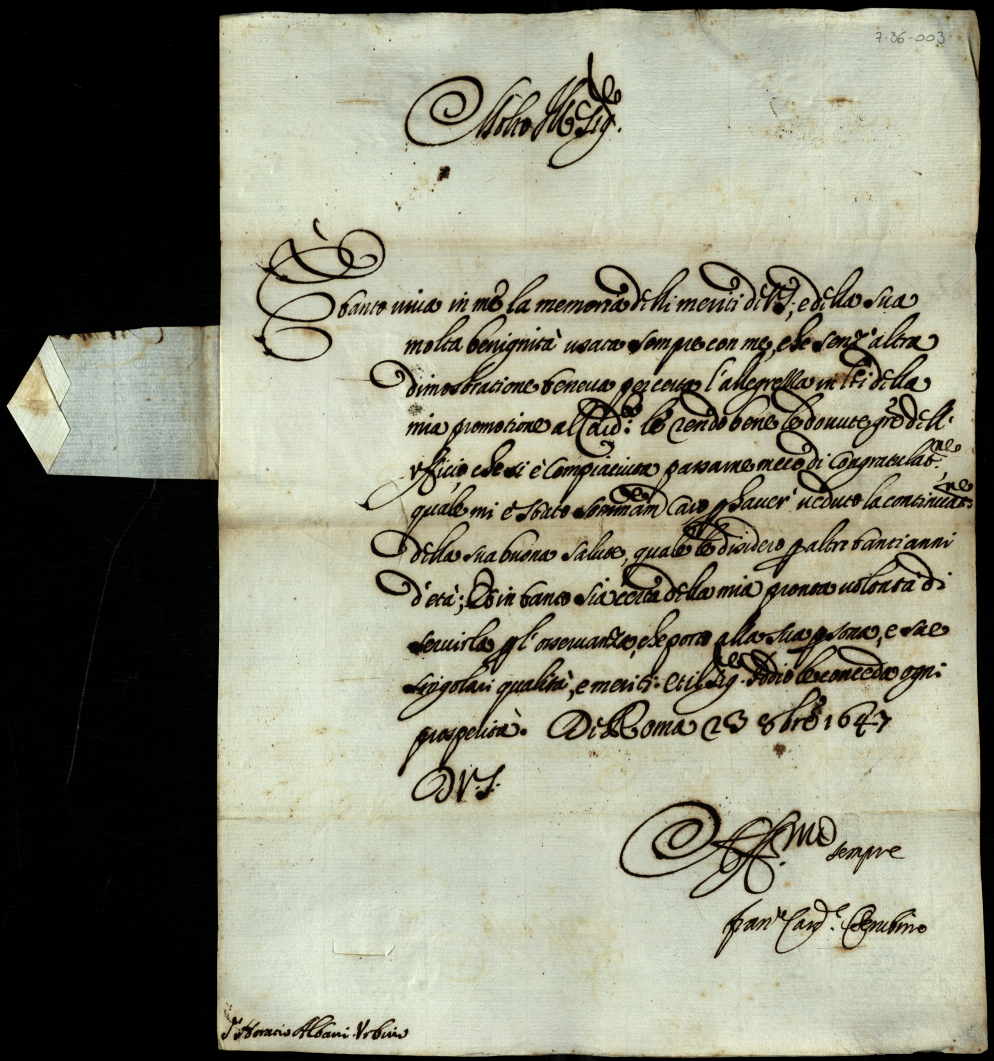 7-36-003
Molto Ill.re Sig.re
È tanto viva in me la memoria delli meriti di V.S., e della sua
molta benignità usata sempre con me, che senz' altra
dimostratione teneva per certa l'allegrezza in lei della
mia promotione al Card.to: le rendo bene le dovute gr̄e dell'
ufficio che si è compiaciuta passarne meco di congratulat.ne
quale mi è stato som̄am.te caro p haver' veduto la continuat.ne
della sua buona salute, quale le desidero p altri tanti anni
d'età; Et in tanto sia certa della mia pronta volontà di
servirla p l'osservanza, che porto alla sua psona, e sue
singolari qualità, e meriti: et il Sig.re Iddio le conceda ogni
prosperità. Di Roma 23 8bre 1647
D V. S.
Aff.mo sempre
fran.co Card.l Cherubino
S.r Horacio Albani. Urbino